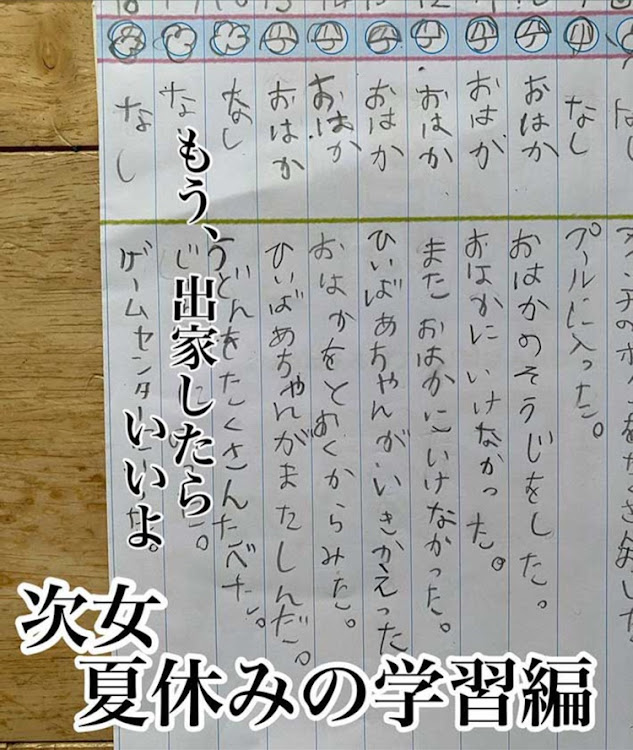 なし
プールに入った。
おはか
おはかのそうじをした。
おはか
おはかにいけなかった。
おはか
また おはかにいけなかった。
おはか
ひいばあちゃんがいきかえった
おはか
おはかをとおくからみた。
おはか
ひいばあちゃんがまたしんだ。
なし
うどんをたくさんたべた。
なし
なし
ゲームセンター
もう、出家したら
いいよ。
次女
夏休みの学習編